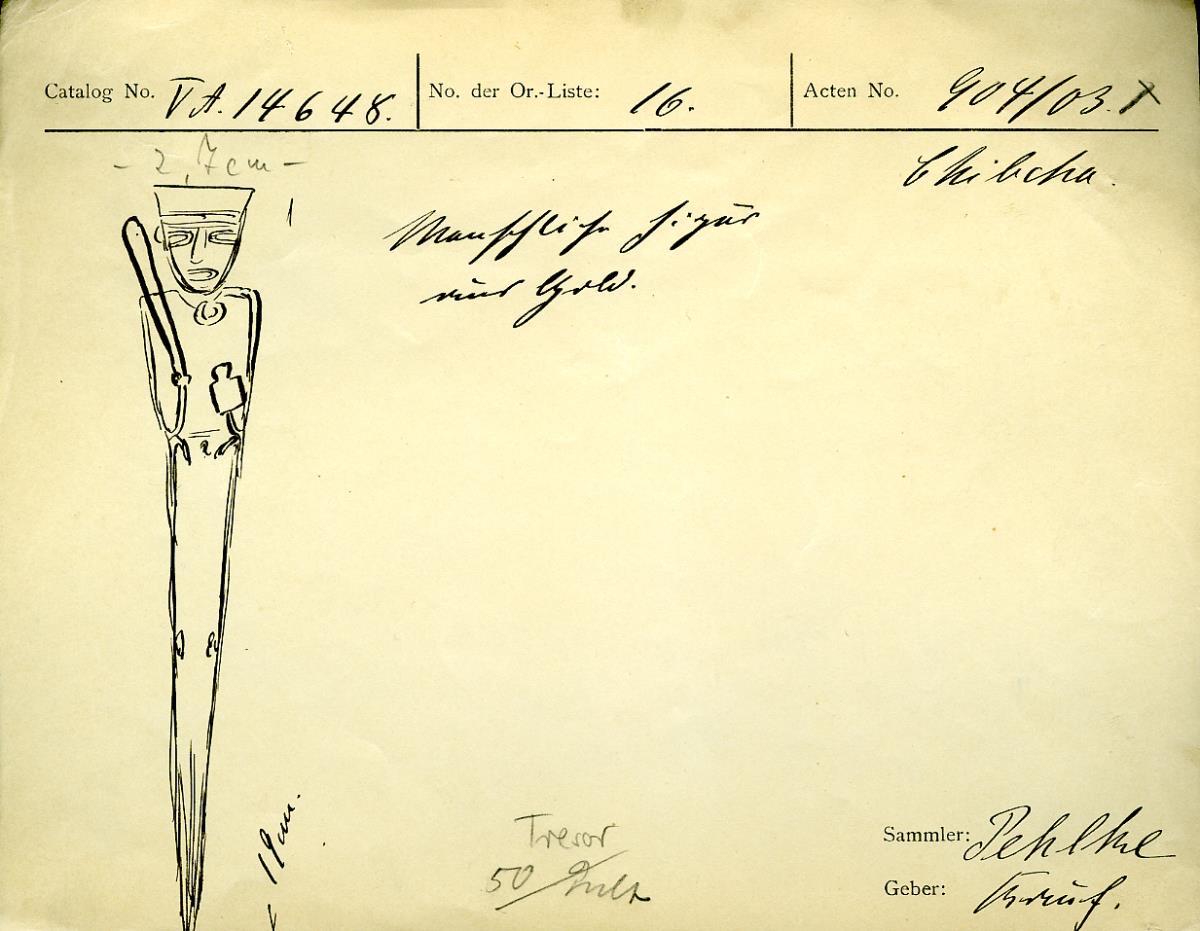 Catalog No. VA. 14648.
No. der Or.-Liste: 16.
Acten No. 904/03. I
- 2,7cm -
Chibcha.
Menschliche Figur
aus Gold.
19cm.
Tresor
50
Sammler: Pehlke
Geber: Kauf.